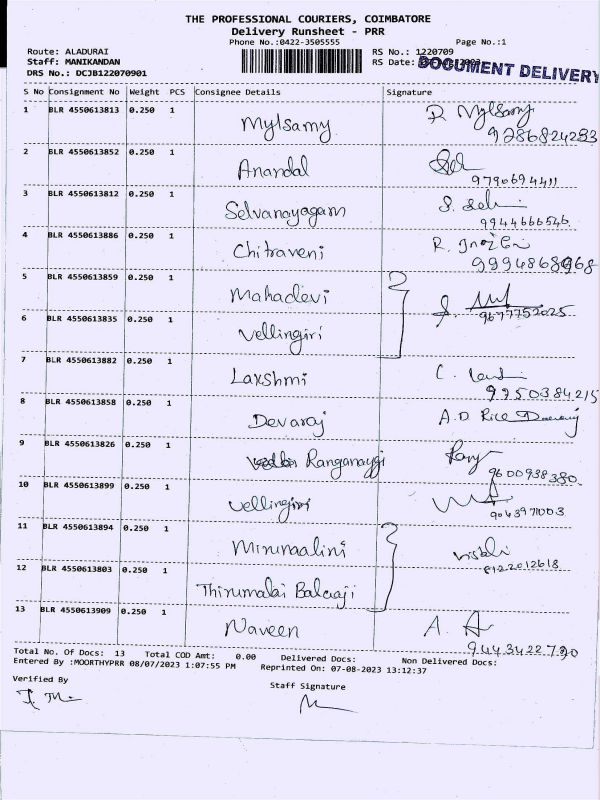 THE PROFESSIONAL COURIERS, COIMBATORE
Delivery Runsheet - PRR
Phone No.:0422-3505555
Page No.:1
Route: ALADURAI
RS No.: 1220709
Staff: MANIKANDAN
RS Date:
DOCUMENT DELIVERY
DRS No.: DCJB122070901
S No Consignment No Weight PCS Consignee Details Signature
1 BLR 4550613813 0.250 1 Mylsamy R Mylsamy
9286824233
2 BLR 4550613852 0.250 1 Anandal
9790694411
3 BLR 4550613812 0.250 1 Selvanayagam
9944666546
4 BLR 4550613886 0.250 1 Chitraveni
5 BLR 4550613859 0.250 1 Mahadevi
9677752025
6 BLR 4550613835 0.250 1 Vellingiri
7 BLR 4550613882 0.250 1 Laxshmi
9950384215
8 BLR 4550613858 0.250 1 Devaraj A.D Rice
9 BLR 4550613826 0.250 1 Ranganaygi
9600938380
10 BLR 4550613899 0.250 1 Vellingiri
9043971003
11 BLR 4550613894 0.250 1 Mirunaalini
8122012618
12 BLR 4550613803 0.250 1 Thirumalai Balaaji
13 BLR 4550613909 0.250 1 Naveen
9443422790
Total No. Of Docs: 13 Total COD Amt: 0.00 Delivered Docs: Non Delivered Docs:
Entered By :MOORTHYPRR 08/07/2023 1:07:55 PM Reprinted On: 07-08-2023 13:12:37
Verified By
Staff Signature